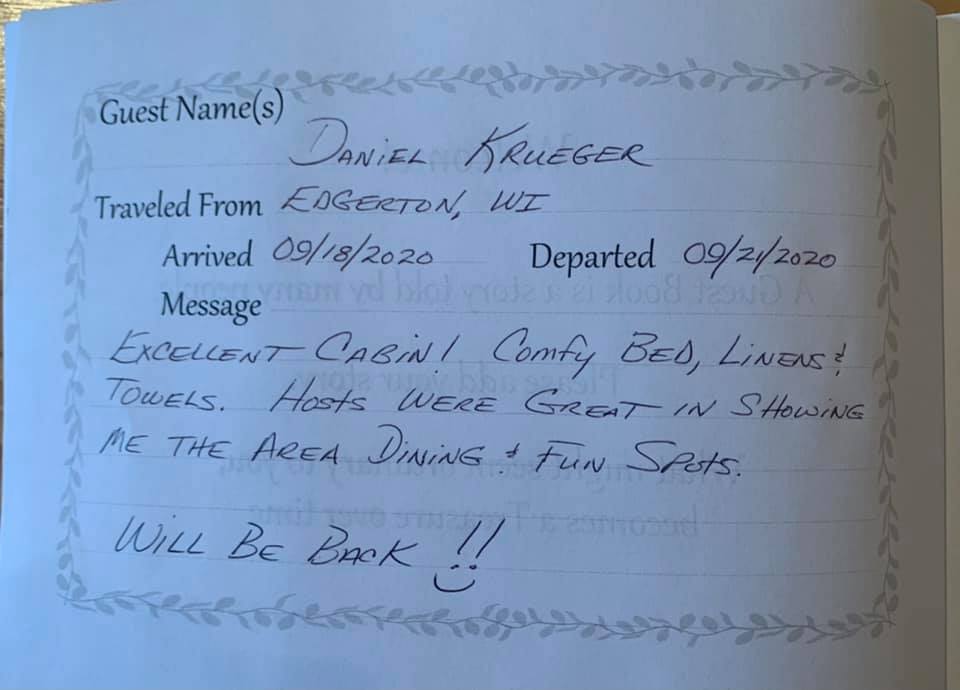 Guest Name(s)
DANIEL KRUEGER
Traveled From EDGERTON, WI
Arrived 09/18/2020 Departed 09/21/2020
Message
EXCELLENT CABIN! COMFY BED, LINENS &
TOWELS. HOSTS WERE GREAT IN SHOWING
ME THE AREA DINING & FUN SPOTS.
WILL BE BACK !!